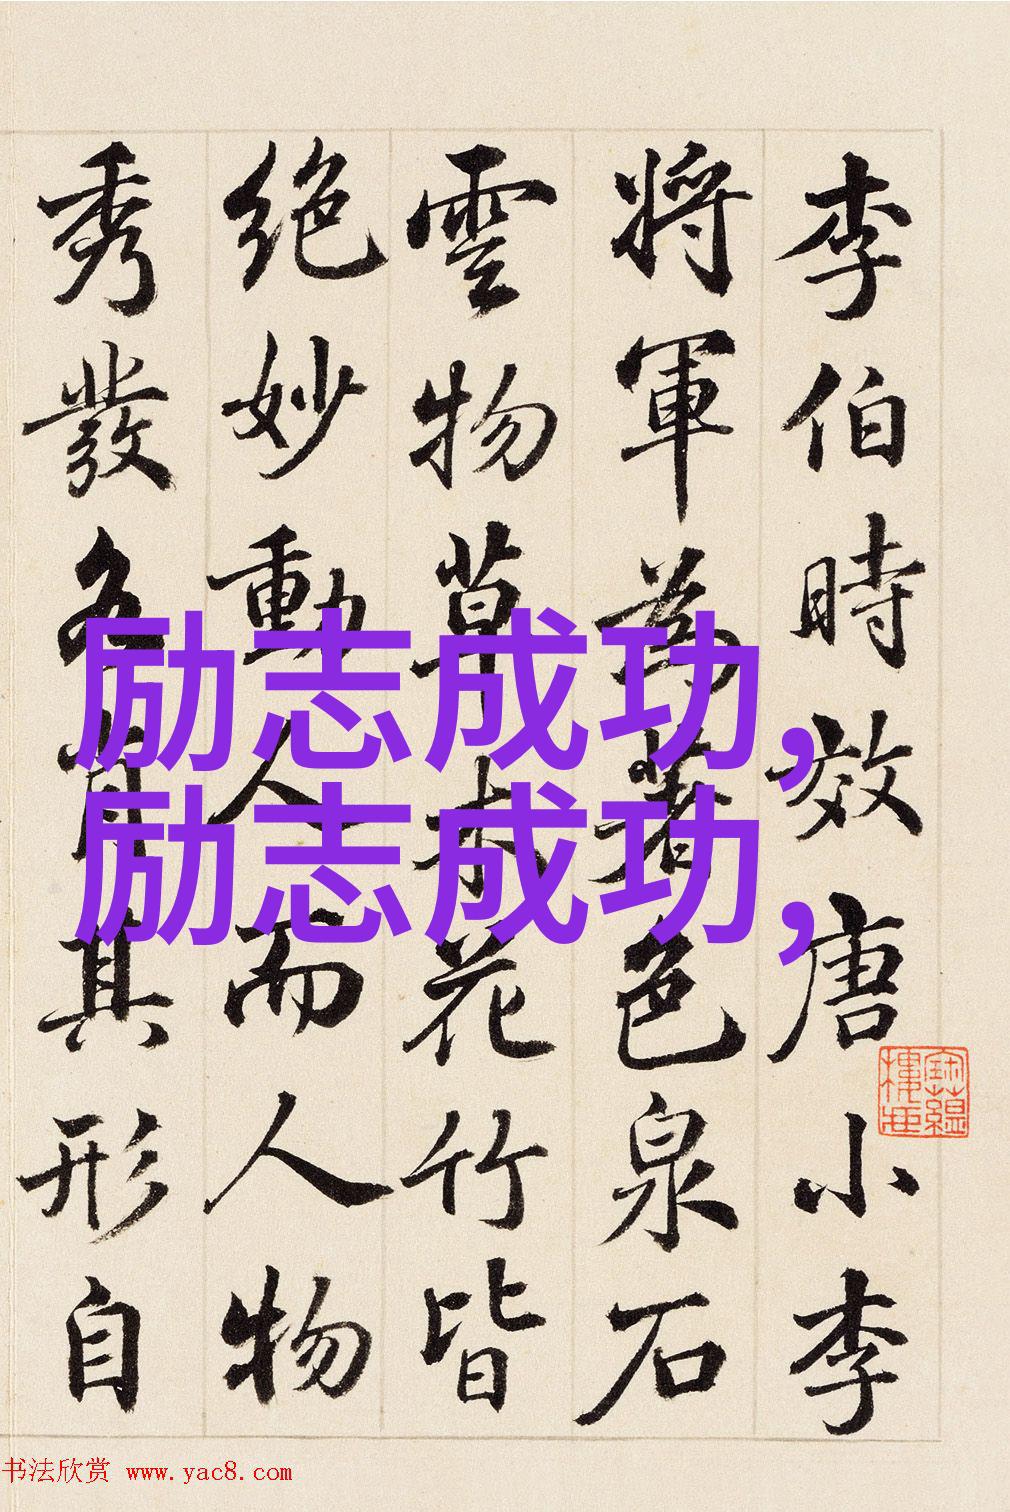 李伯時效唐小李
將軍為著色泉石
雲物草木花竹皆
絕妙動人而人物
秀發各有其形自
励志成功,
励志成功,
书法欣赏 www.yac8.com